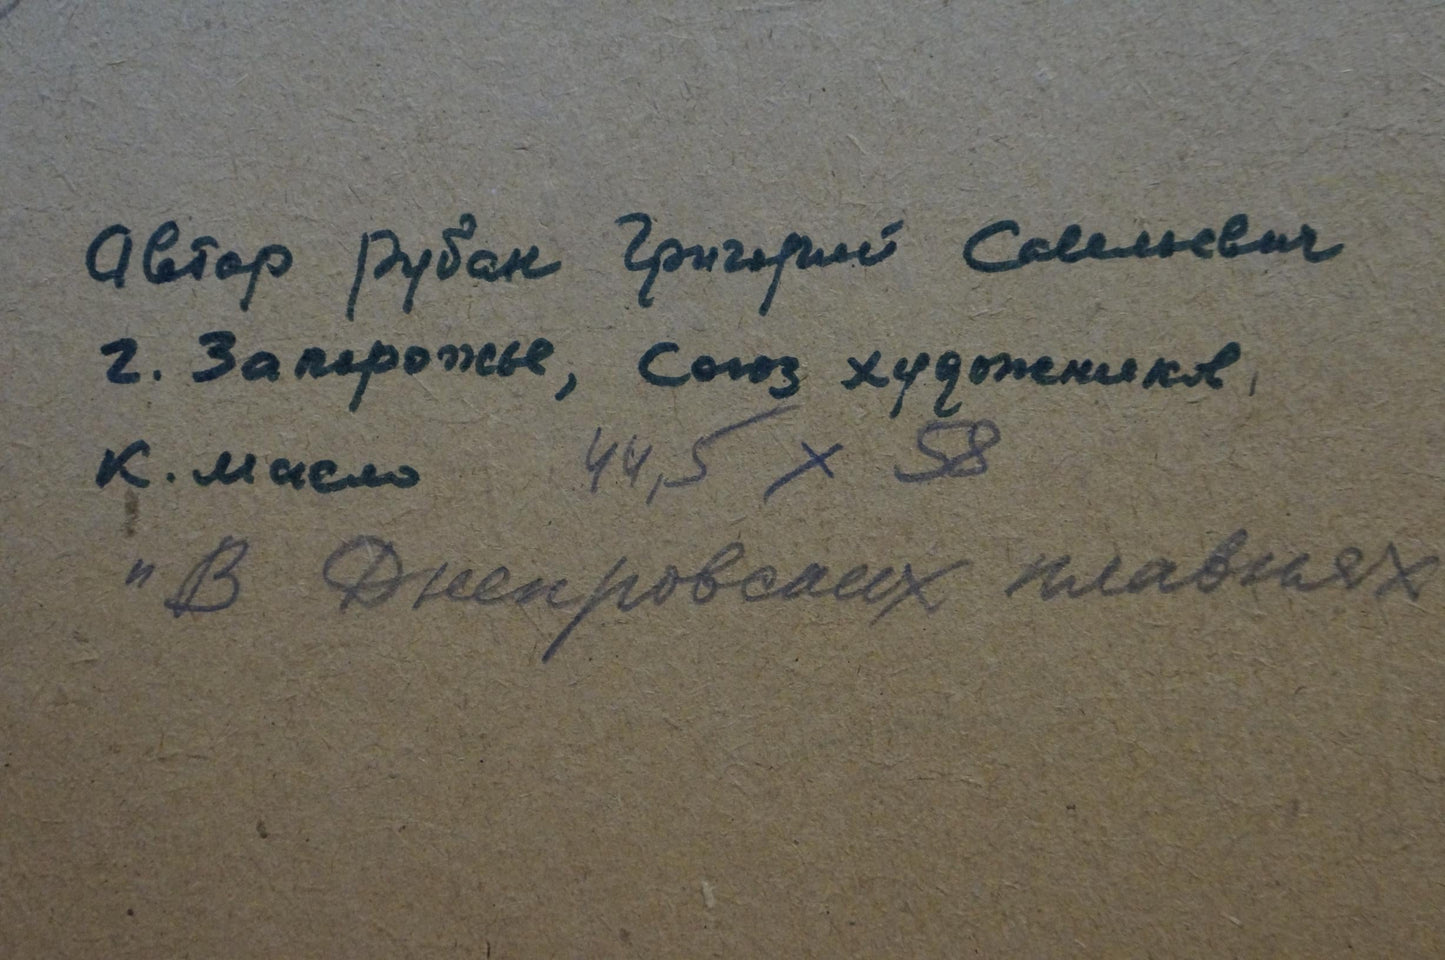 Автор Рубан Григорий Савельевич
г. Запорожье, Союз художников,
К. Масло 44,5 х 58
"В Днепровских плавнях